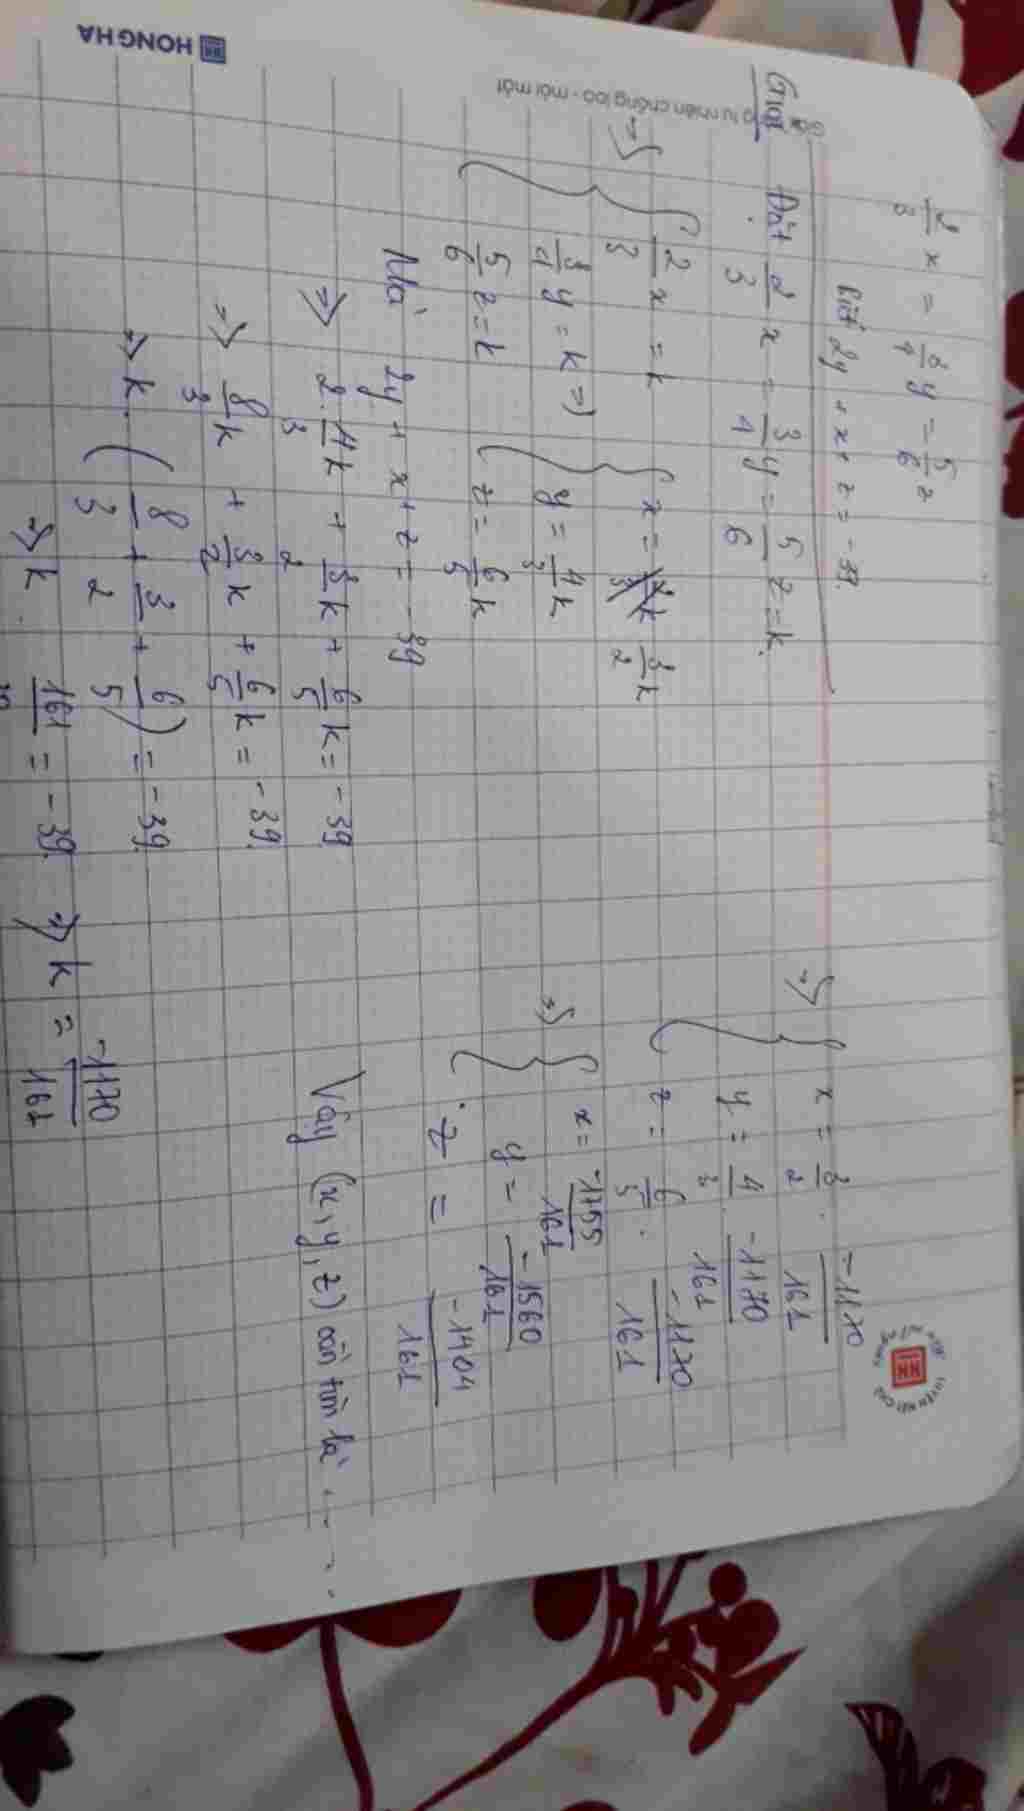 HONG HA
2/3 x = 3/4 y = 5/6 z
Biết 2y + x + z = -39
Giải
Đặt 2/3 x = 3/4 y = 5/6 z = k.
=> { 2/3 x = k
3/4 y = k =>
5/6 z = k
{ x = 3/2 k
y = 4/3 k
z = 6/5 k
Mà 2y + x + z = -39
=> 2. 4/3 k + 3/2 k + 6/5 k = -39.
=> 8/3 k + 3/2 k + 6/5 k = -39.
=> k. ( 8/3 + 3/2 + 6/5 ) = -39.
=> k. 161 = -39. => k = -1170/161
=> { x = 3/2 . -1170/161
y = 4/3 . -1170/161
z = 6/5 . -1170/161
=> { x = -1755/161
y = -1560/161
z = -1404/161
Vậy (x, y, z) cần tìm là .....